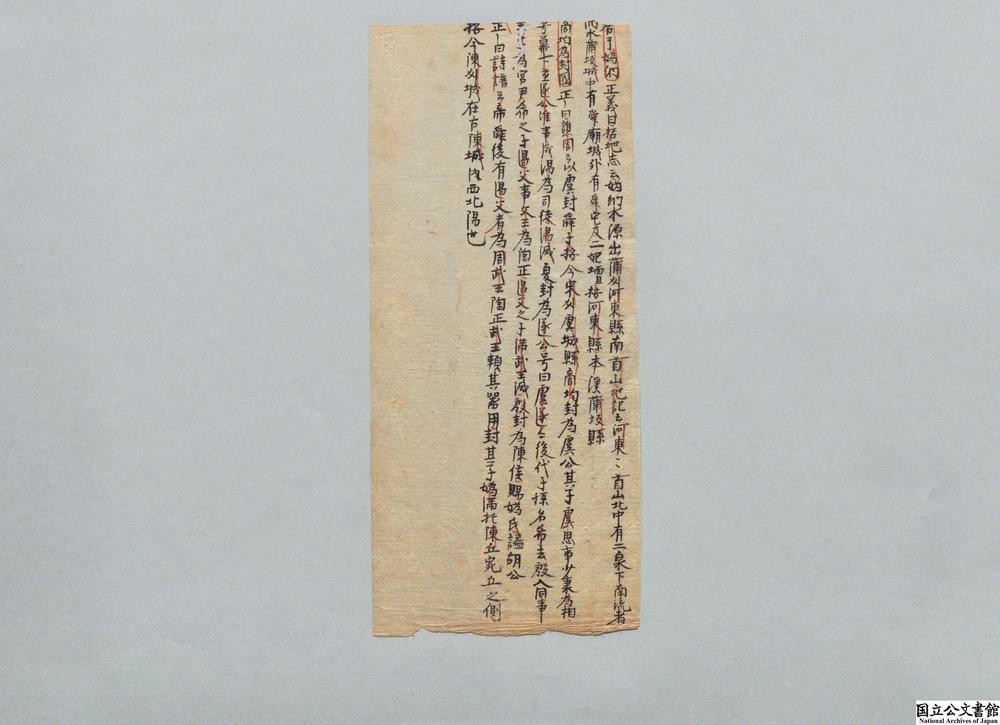 居于嬀汭 正義曰括地志云嬀汭水源出蒲州河東縣南首山地記云河東〻首山北中有二泉下南流者
汭水蒲坂城中有舜廟城外有舜宅及二妃壇按河東縣本漢蒲坂縣
商均為封國 正〻曰譙周云以虞封舜子按今宋州虞城縣商均封為虞公其子虞思事少康為相
号幕下至遂公淮事成湯為司徒湯滅夏封為遂公号曰虞遂〻後代子孫名希去殷入周事
王季為宮尹希之子遏父事文王為陶正遏父之子滿武王滅殷封為陳侯賜嬀氏謚胡公
正〻曰詩譜云帝舜後有遏父者為周武王陶正武王賴其器用封其子嬀滿於陳丘宛丘之側
按今陳州城在古陳城内西北隅也
国立公文書館
National Archives of Japan